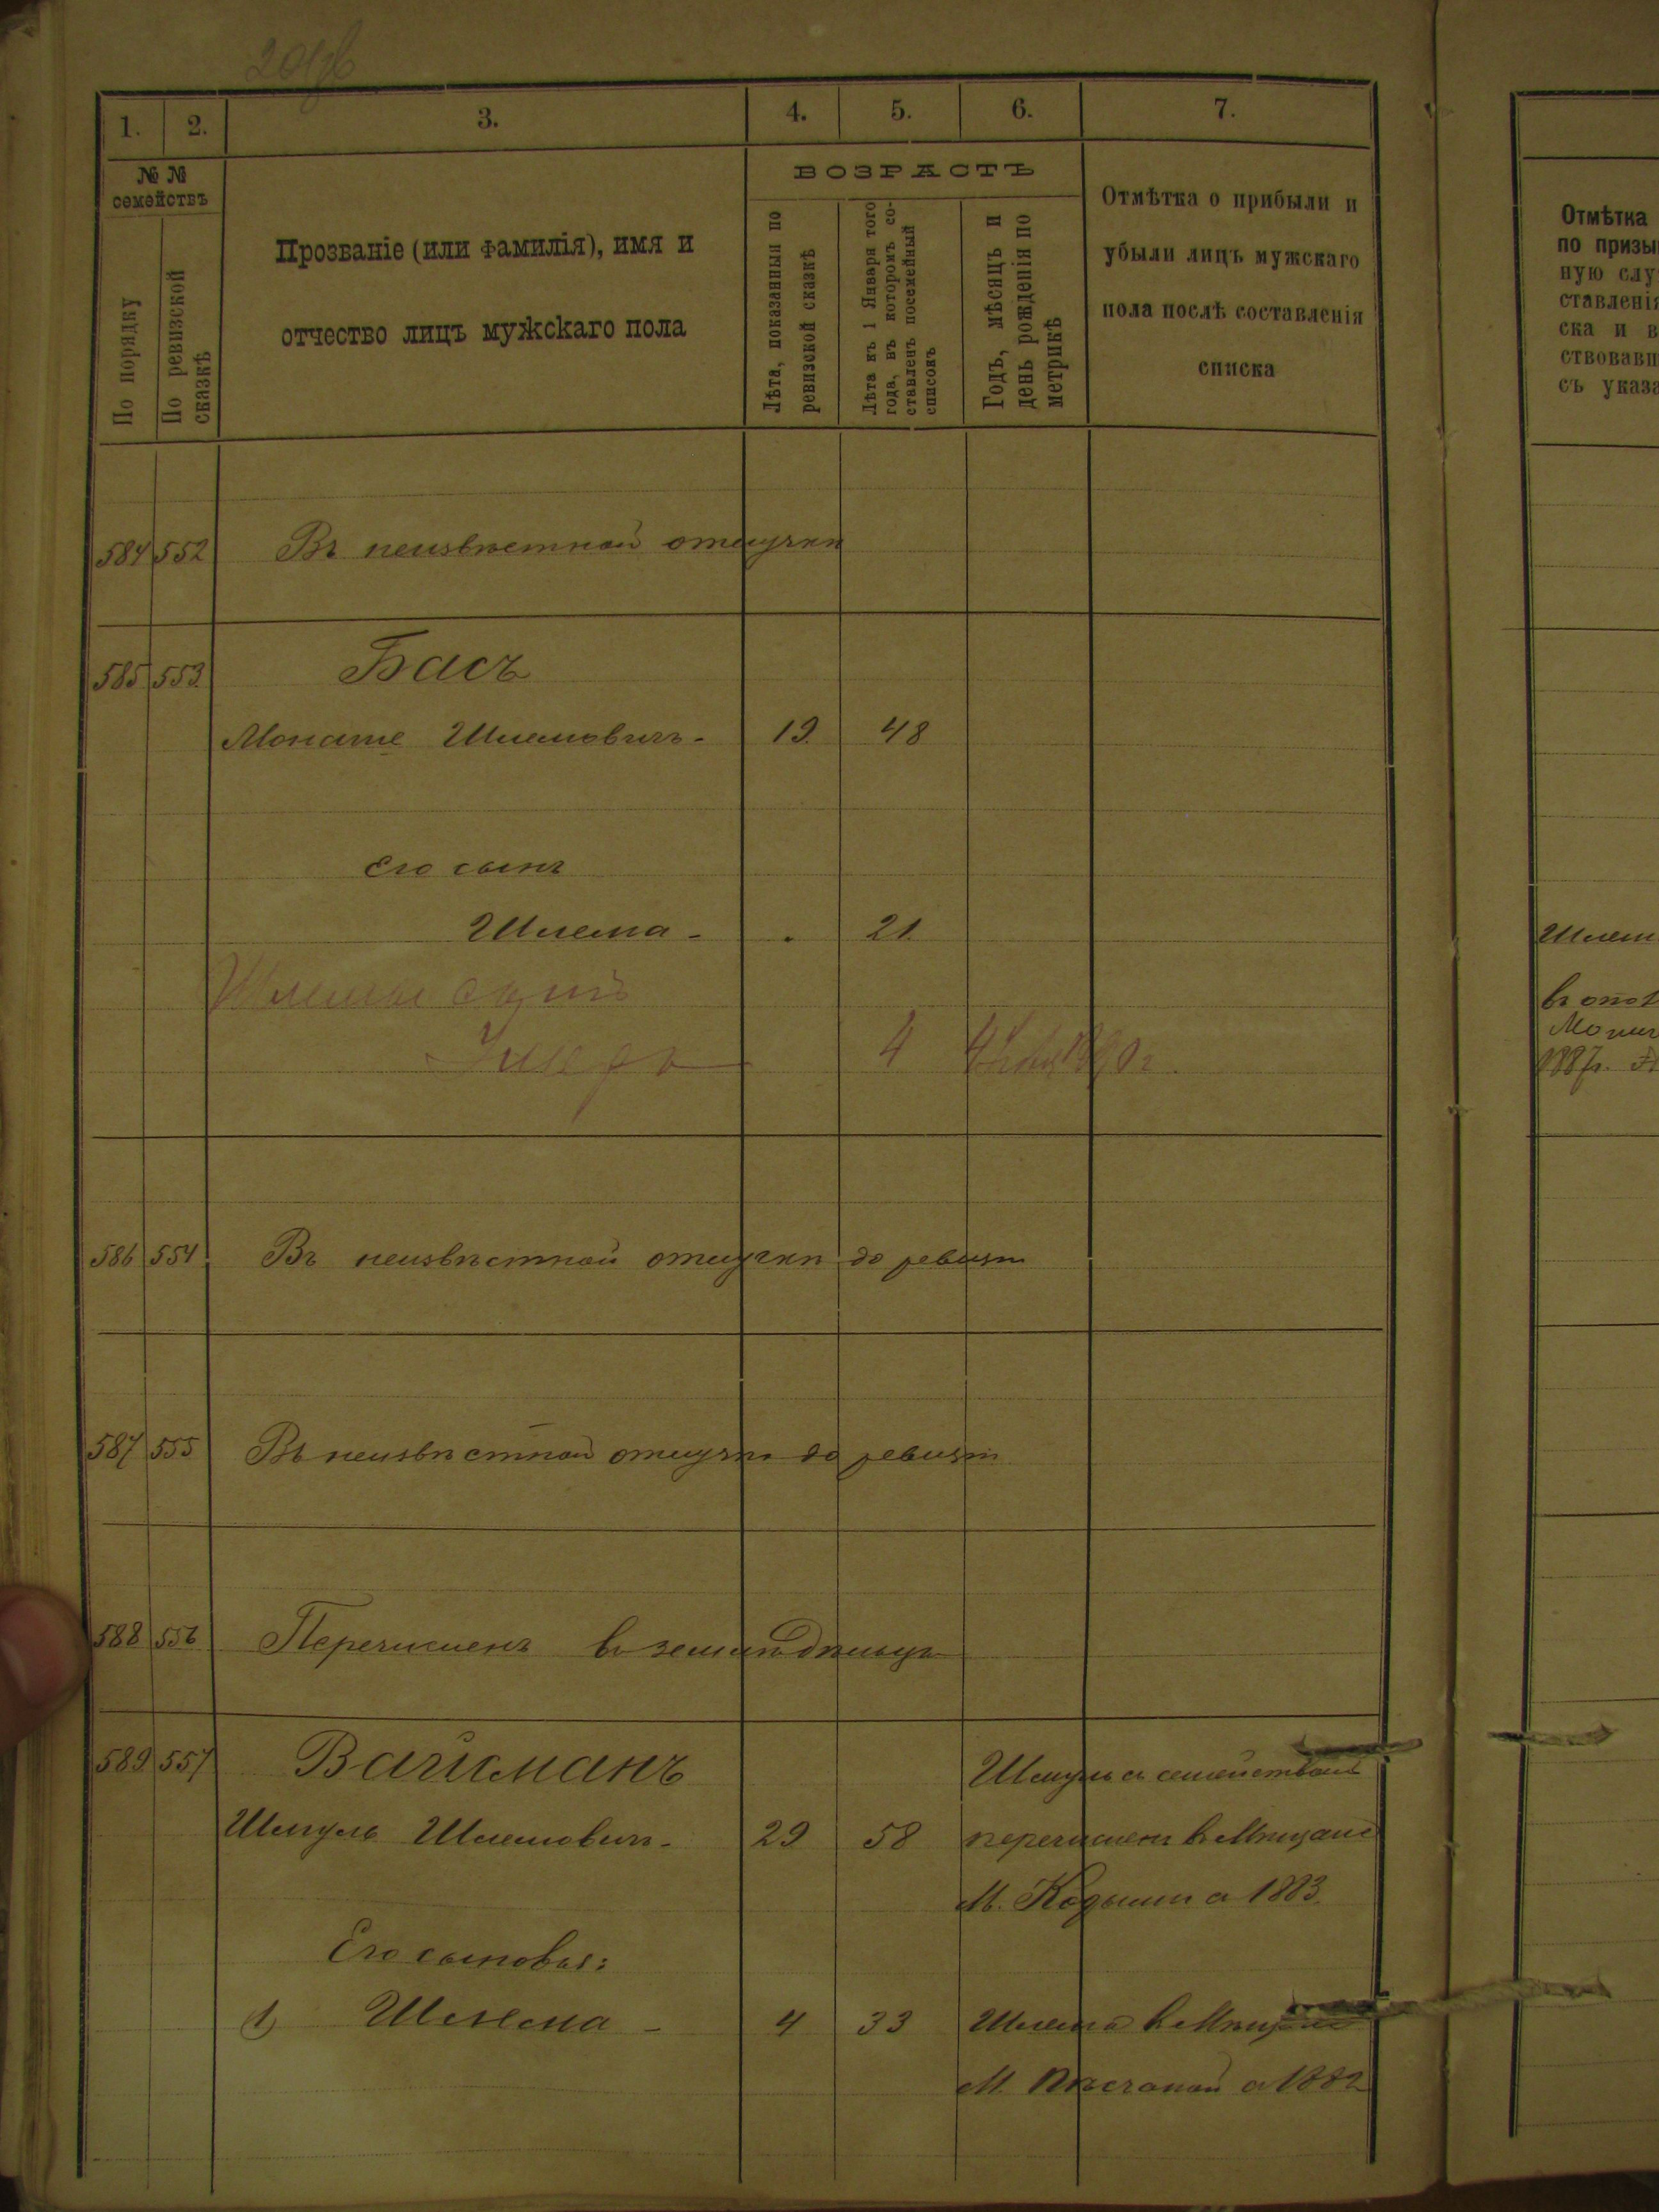 1. 2. 3. 4. 5. 6. 7.
№ №
семействъ
По порядку
По ревизской
сказкѣ
Прозваніе (или фамилія), имя и
отчество лицъ мужскаго пола
ВОЗРАСТЪ
Лѣта, показанныя по
ревизской сказкѣ
Лѣта къ 1 Января того
года, въ которомъ со-
ставленъ посемейный
списокъ
Годъ, мѣсяцъ и
день рожденія по
метрикѣ
Отмѣтка о прибыли и
убыли лицъ мужскаго
пола послѣ составленія
списка
584 552 Въ неизвѣстной отлучкѣ
585 553 Басъ
Шлемовичъ - 19. 48
Его сынъ
Шлема - 21.
Шлемы сынъ
4
586 554 Въ неизвѣстной отлучкѣ до ревизіи
587 555 Въ неизвѣстной отлучкѣ до ревизіи
588 556 Перечисленъ въ земледѣльцы
589 557 Вайсманъ Шмуль съ семействомъ
Шмуль Шлемовичъ - 29 58 перечисленъ въ Мѣщане
М. Кодыми с 1883.
Его сыновья:
1) Шлема - 4 33 Шлема въ Мѣщане
М. Песчаной с 1882
Отмѣтка
по призы
ную слу
ставленія
ска и в
ствовавш
съ указа
Шлем
1887г.